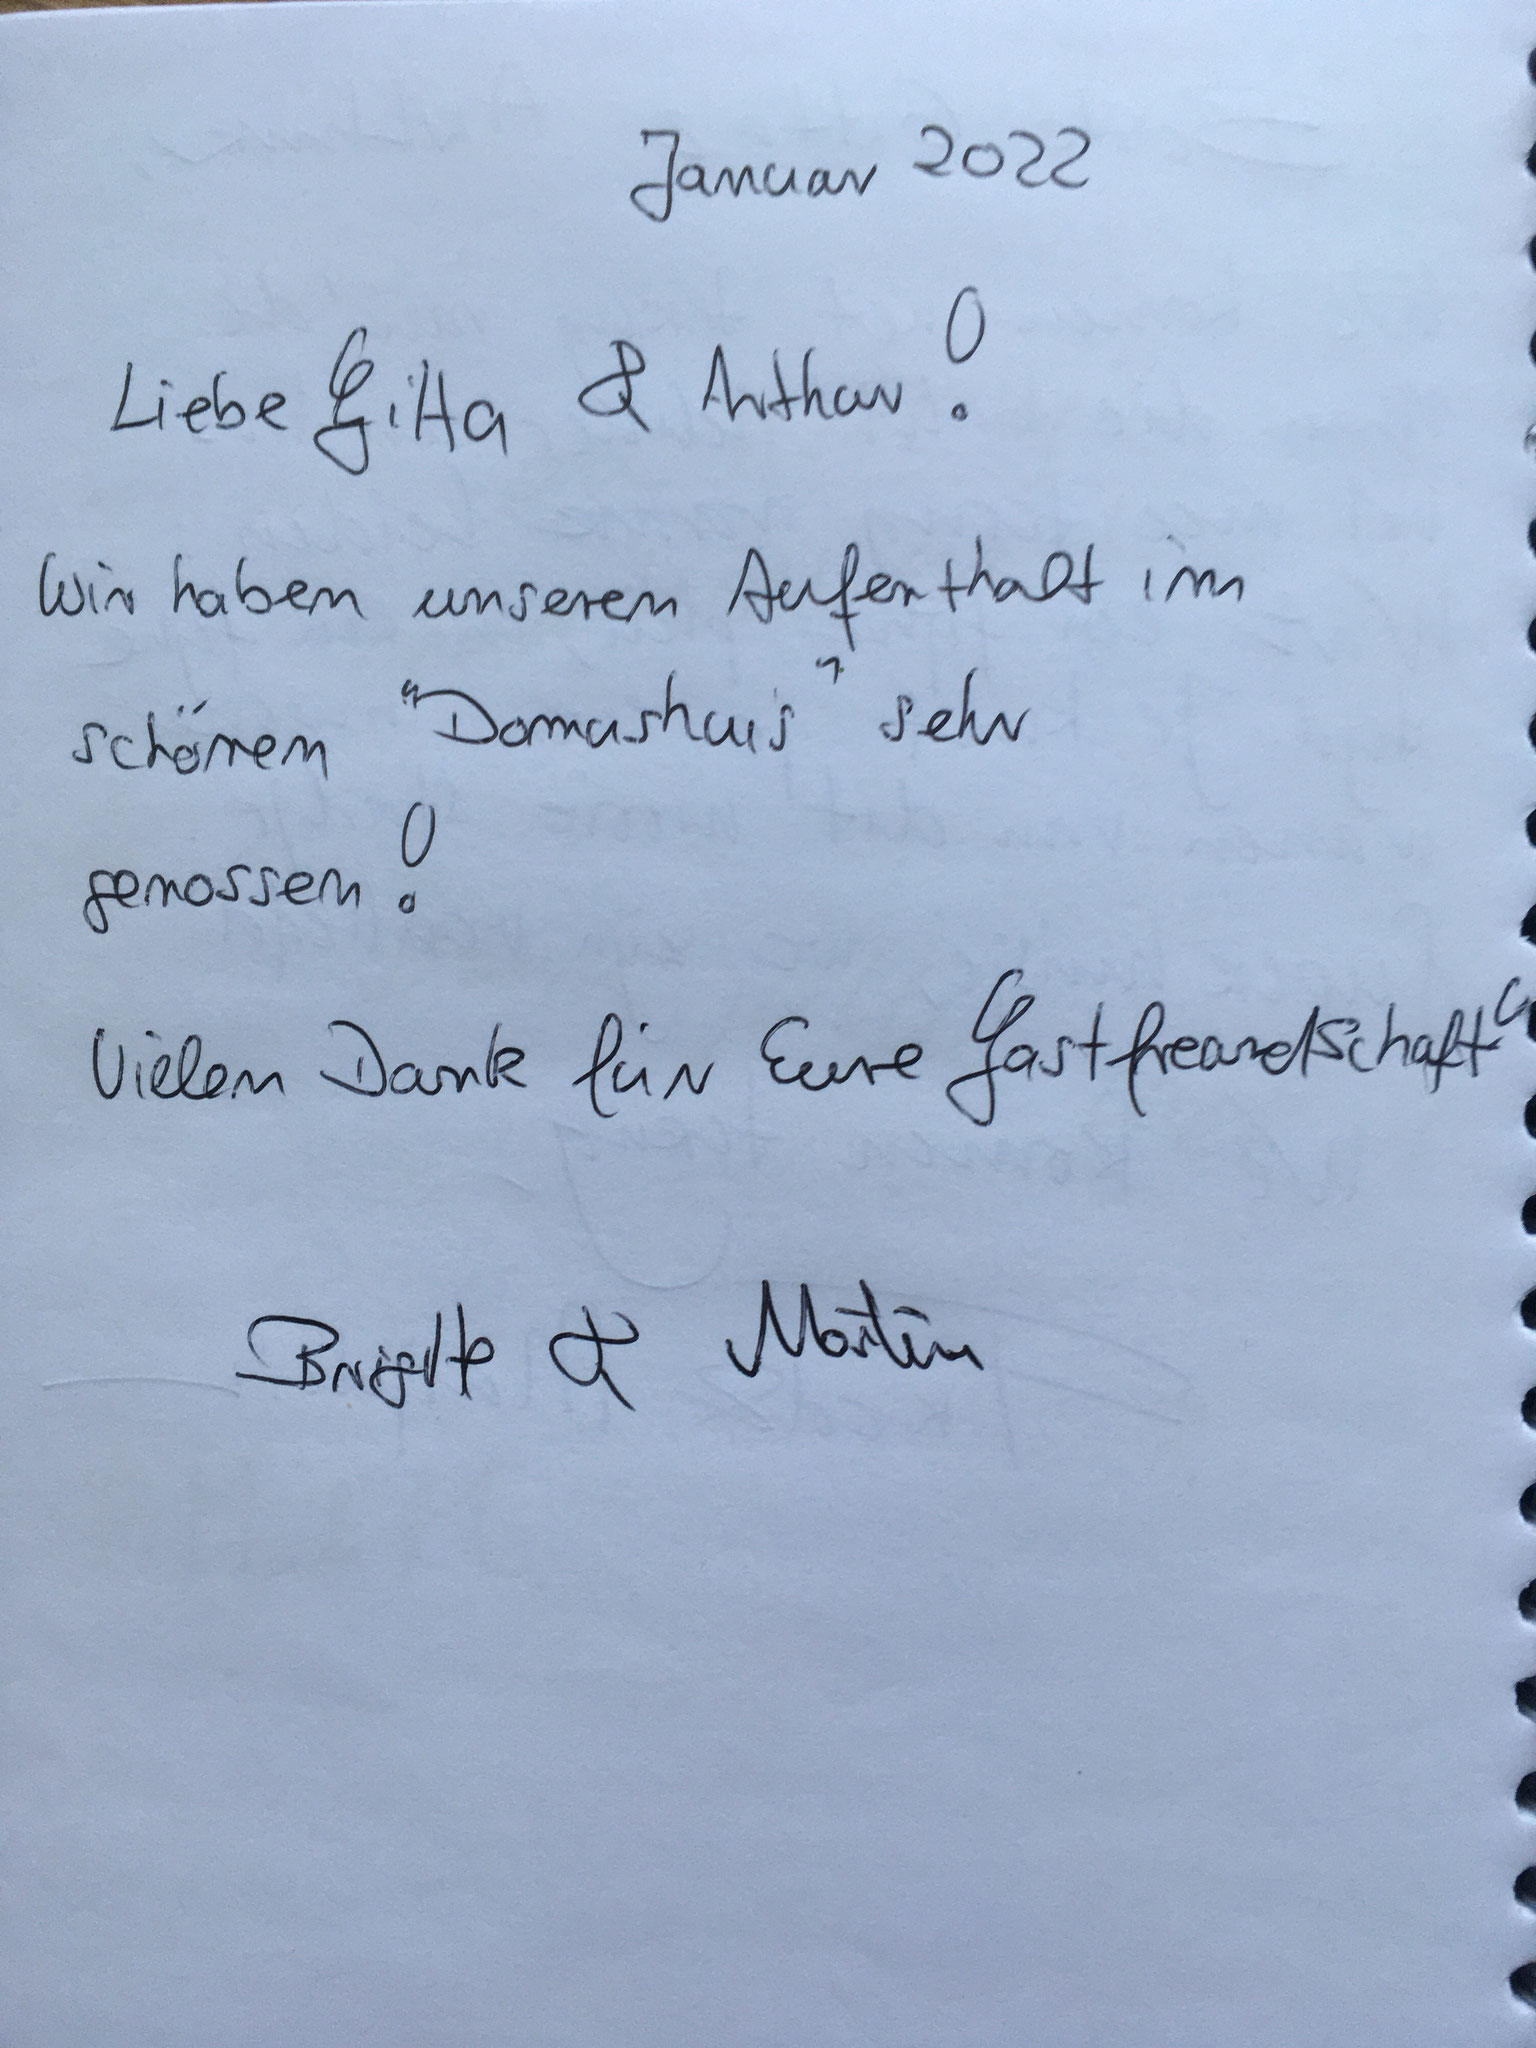 Januar 2022
Liebe Gitta & Arthur!
Wir haben unseren Aufenthalt im
schönen "Domushuis" sehr
genossen!
Vielen Dank für Eure Gastfreundschaft
Brigitte & Martin